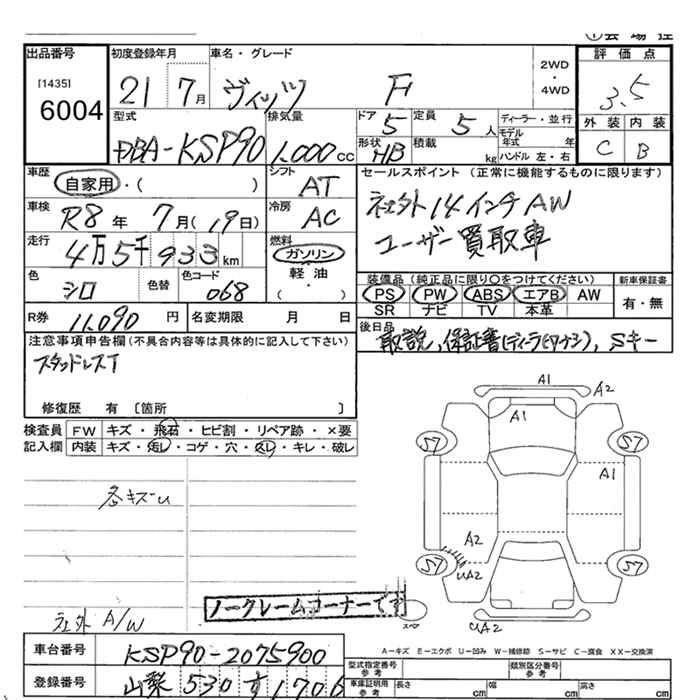 ①会場控
出品番号
[1435]
6004
初度登録年月
21 7月
車名・グレード
ヴィッツ F
2WD
・
4WD
評価点
3.5
外装 内装
C B
型式
DBA-KSP90
排気量
1,000cc
ドア 5
定員 5人
形状 HB
積載 kg
ディーラー・並行
モデル年式 年
ハンドル 左・右
車歴
自家用・( )
シフト
AT
車検
R8年 7月(19日)
冷房
AC
走行
4万5千933km
燃料
ガソリン
軽油
(・)
色
シロ
色替
色コード
068
R券 11,090円
名変期限 月 日
セールスポイント(正常に機能するものに限ります)
社外14インチAW
ユーザー買取車
装備品(純正品に限り〇をつけてください)
PS PW ABS エアB AW
SR ナビ TV 本革
新車保証書
有・無
後日品
取説,保証書(ディーラー印ナシ),Sキー
注意事項申告欄(不具合内容等は具体的に記入して下さい)
スタッドレスT
修復歴 有〔箇所 〕
検査員記入欄
FW キズ・飛石・ヒビ割・リペア跡・×要
内装 キズ・汚レ・コゲ・穴・スレ・キレ・破レ
各キズU
社外A/W
A1
A2
A1
S7
S7
A1
A2
UA2
S7
S7
UA2
スペア
ノークレームコーナーです
A-キズ E-エクボ U-凹み W-補修跡 S-サビ C-腐食 XX-交換済
車台番号
KSP90-2075900
登録番号
山梨 530 す 1706
型式指定番号
参考
類別区分番号
参考
車庫証明用
参考
長さ cm
幅 cm
高さ cm